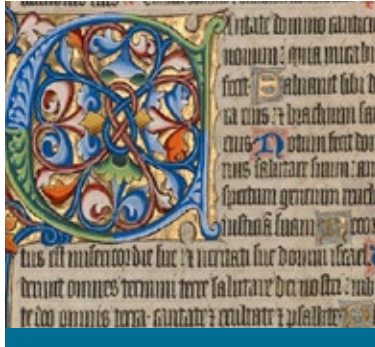 Cantate domino canticu
nouum: quia mirabi
fecit Saluauit sibi d
ra eius ⁊ brachium san
eius Notum fecit do
nus salutare suum: in
spectum gentium reuel
suam Recor
tus est misericordie sue ⁊ ueritati sue domui israel
derunt omnes termini terre salutare dei nostri iub
te deo omnis terra cantate ⁊ exultate ⁊ psallite